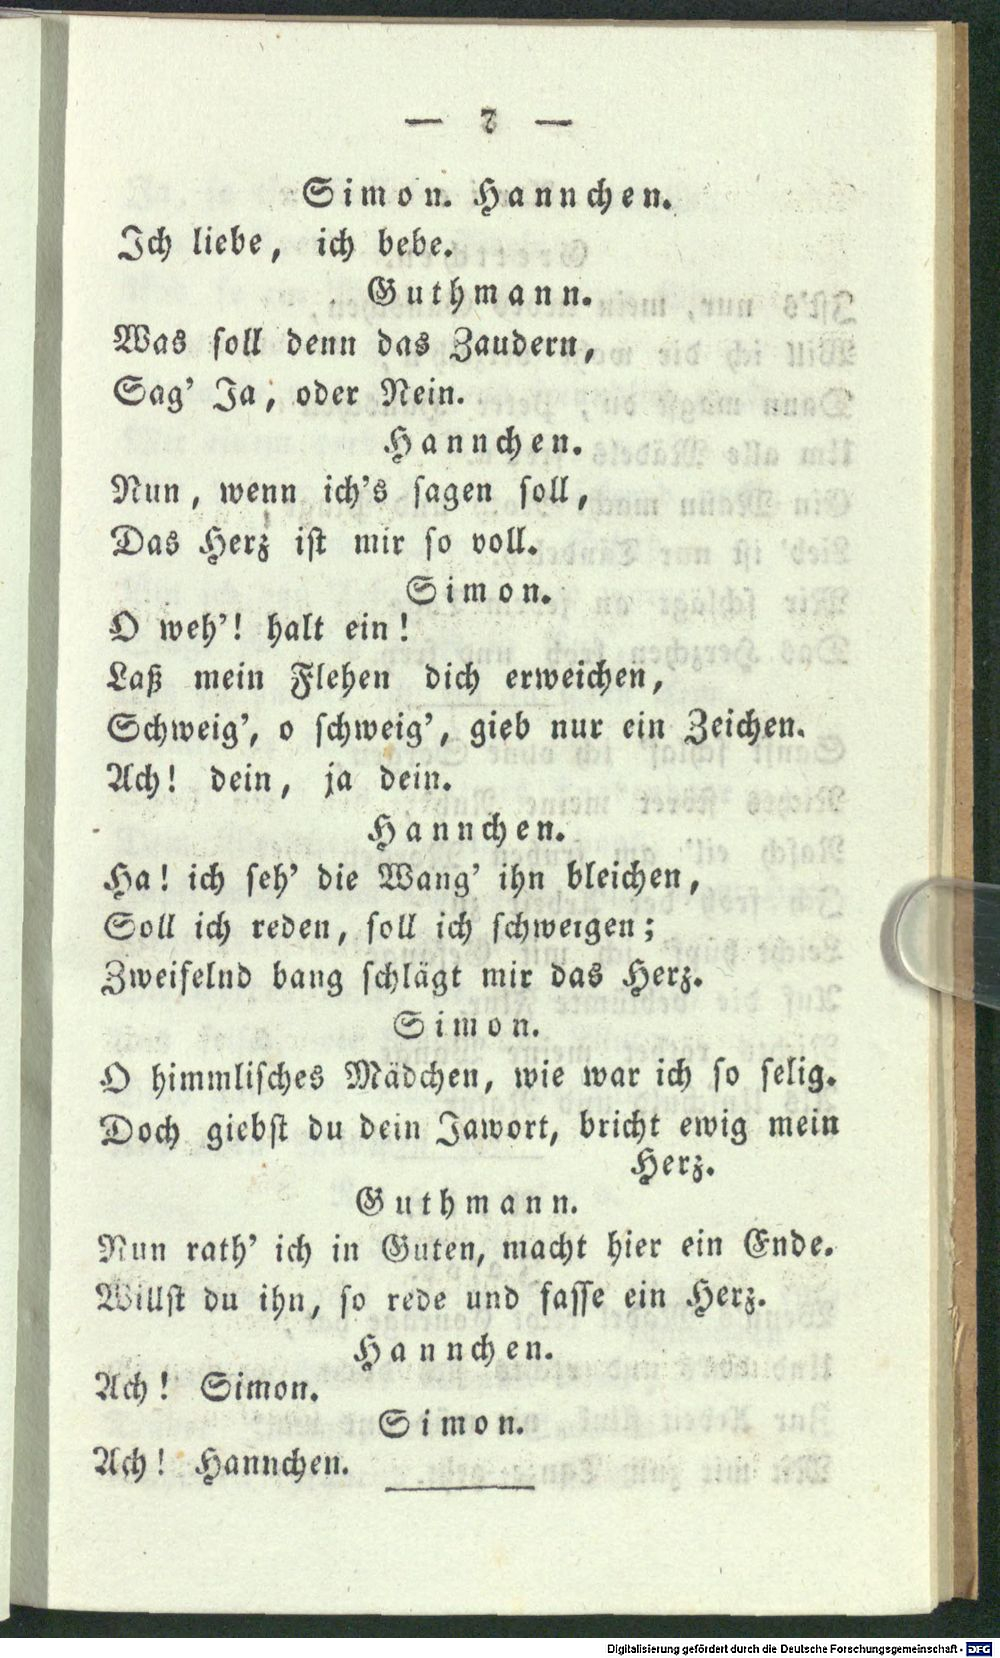 — 7 —
Simon. Hannchen.
Ich liebe, ich bebe.
Guthmann.
Was soll denn das Zaudern,
Sag' Ja, oder Nein.
Hannchen.
Nun, wenn ich's sagen soll,
Das Herz ist mir so voll.
Simon.
O weh'! halt ein!
Laß mein Flehen dich erweichen,
Schweig', o schweig', gieb nur ein Zeichen.
Ach! dein, ja dein.
Hannchen.
Ha! ich seh' die Wang' ihn bleichen,
Soll ich reden, soll ich schweigen;
Zweifelnd bang schlägt mir das Herz.
Simon.
O himmlisches Mädchen, wie war ich so selig.
Doch giebst du dein Jawort, bricht ewig mein
Herz.
Guthmann.
Nun rath' ich in Guten, macht hier ein Ende.
Willst du ihn, so rede und fasse ein Herz.
Hannchen.
Ach! Simon.
Simon.
Ach! Hannchen.
Digitalisierung gefördert durch die Deutsche Forschungsgemeinschaft - DFG